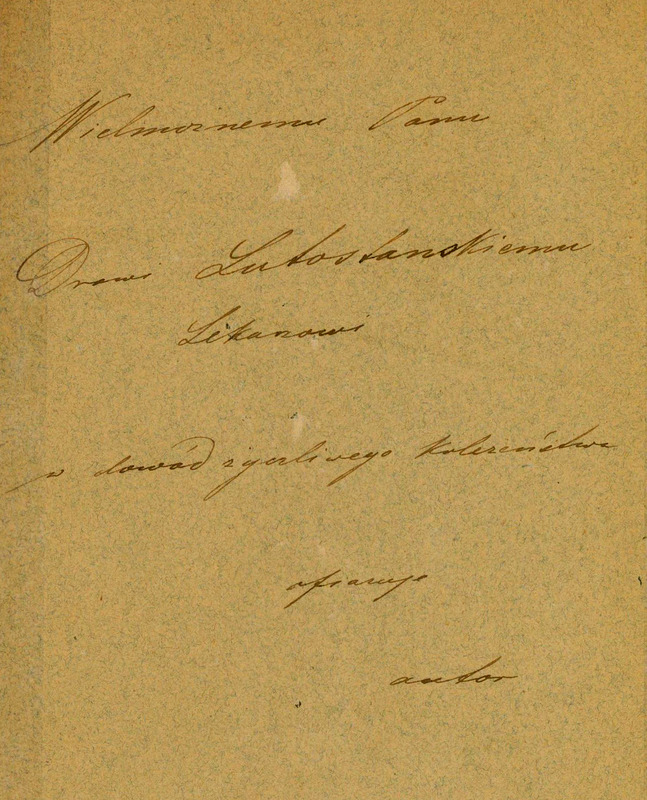 Wielmożnemu Panu
Drowi Lutostanskiemu
Lekarzowi
w dowód życzliwego koleżeństwa
ofiaruje
autor